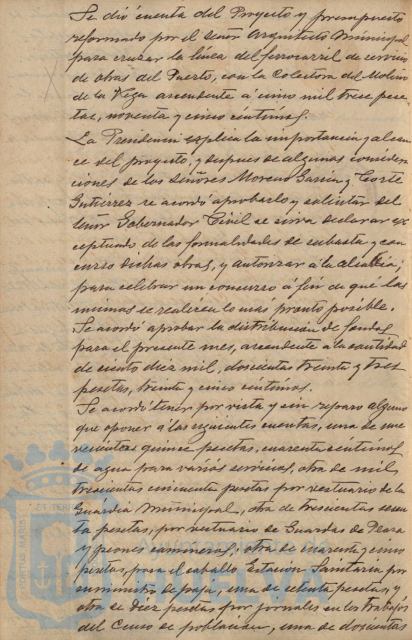 Se dió cuenta del Proyecto y presupuesto
reformado por el Señor Arquitecto Municipal
para cruzar la línea del ferrocarril de servicio
de obras del Puerto, con la Colectora del Molino
de la Vega ascendente a cinco mil trece pese-
tas, noventa y cinco céntimos.
La Presidencia explica la importancia y alcan-
ce del proyecto, y despues de algunas consider
ciones de los Señores Moreno García y Corté
Gutiérrez se acordó aprobarlo y solicitar del
Señor Gobernador Civil se sirva declarar ex
ceptuado de las formalidades de subasta y con
curso dichas obras, y autorizar á la alcaldía;
para celebrar un concurso á fin de que las
mismas se realicen lo más pronto posible.
Se acordó aprobar la distribucion de fondos
para el presente mes, ascendente á la cantidad
de ciento diez mil, doscientas treinta y tres
pesetas, treinta y cinco céntimos.
Se acordó tener por vista y sin reparo alguno
que oponer á las siguientes cuentas, una de nue
vecientas quince pesetas, cuarenta céntimos
de agua para varios servicios, otra de mil
trescientas cincuenta pesetas por vestuario de la
Guardia Municipal, otra de trescientas sesen
ta pesetas, por vestuario de Guardas de
y peones camineros; otra de cuarenta y cinco
pesetas, para el caballo Estación Sanitaria por
suministro de paja, una de setenta pesetas, y
otra de Diez pesetas por jornales en los trabajos
del Censo de poblacion, una de doscientas
PORTUS MARIS
ET TERR
Ayuntamiento de
HUELVA